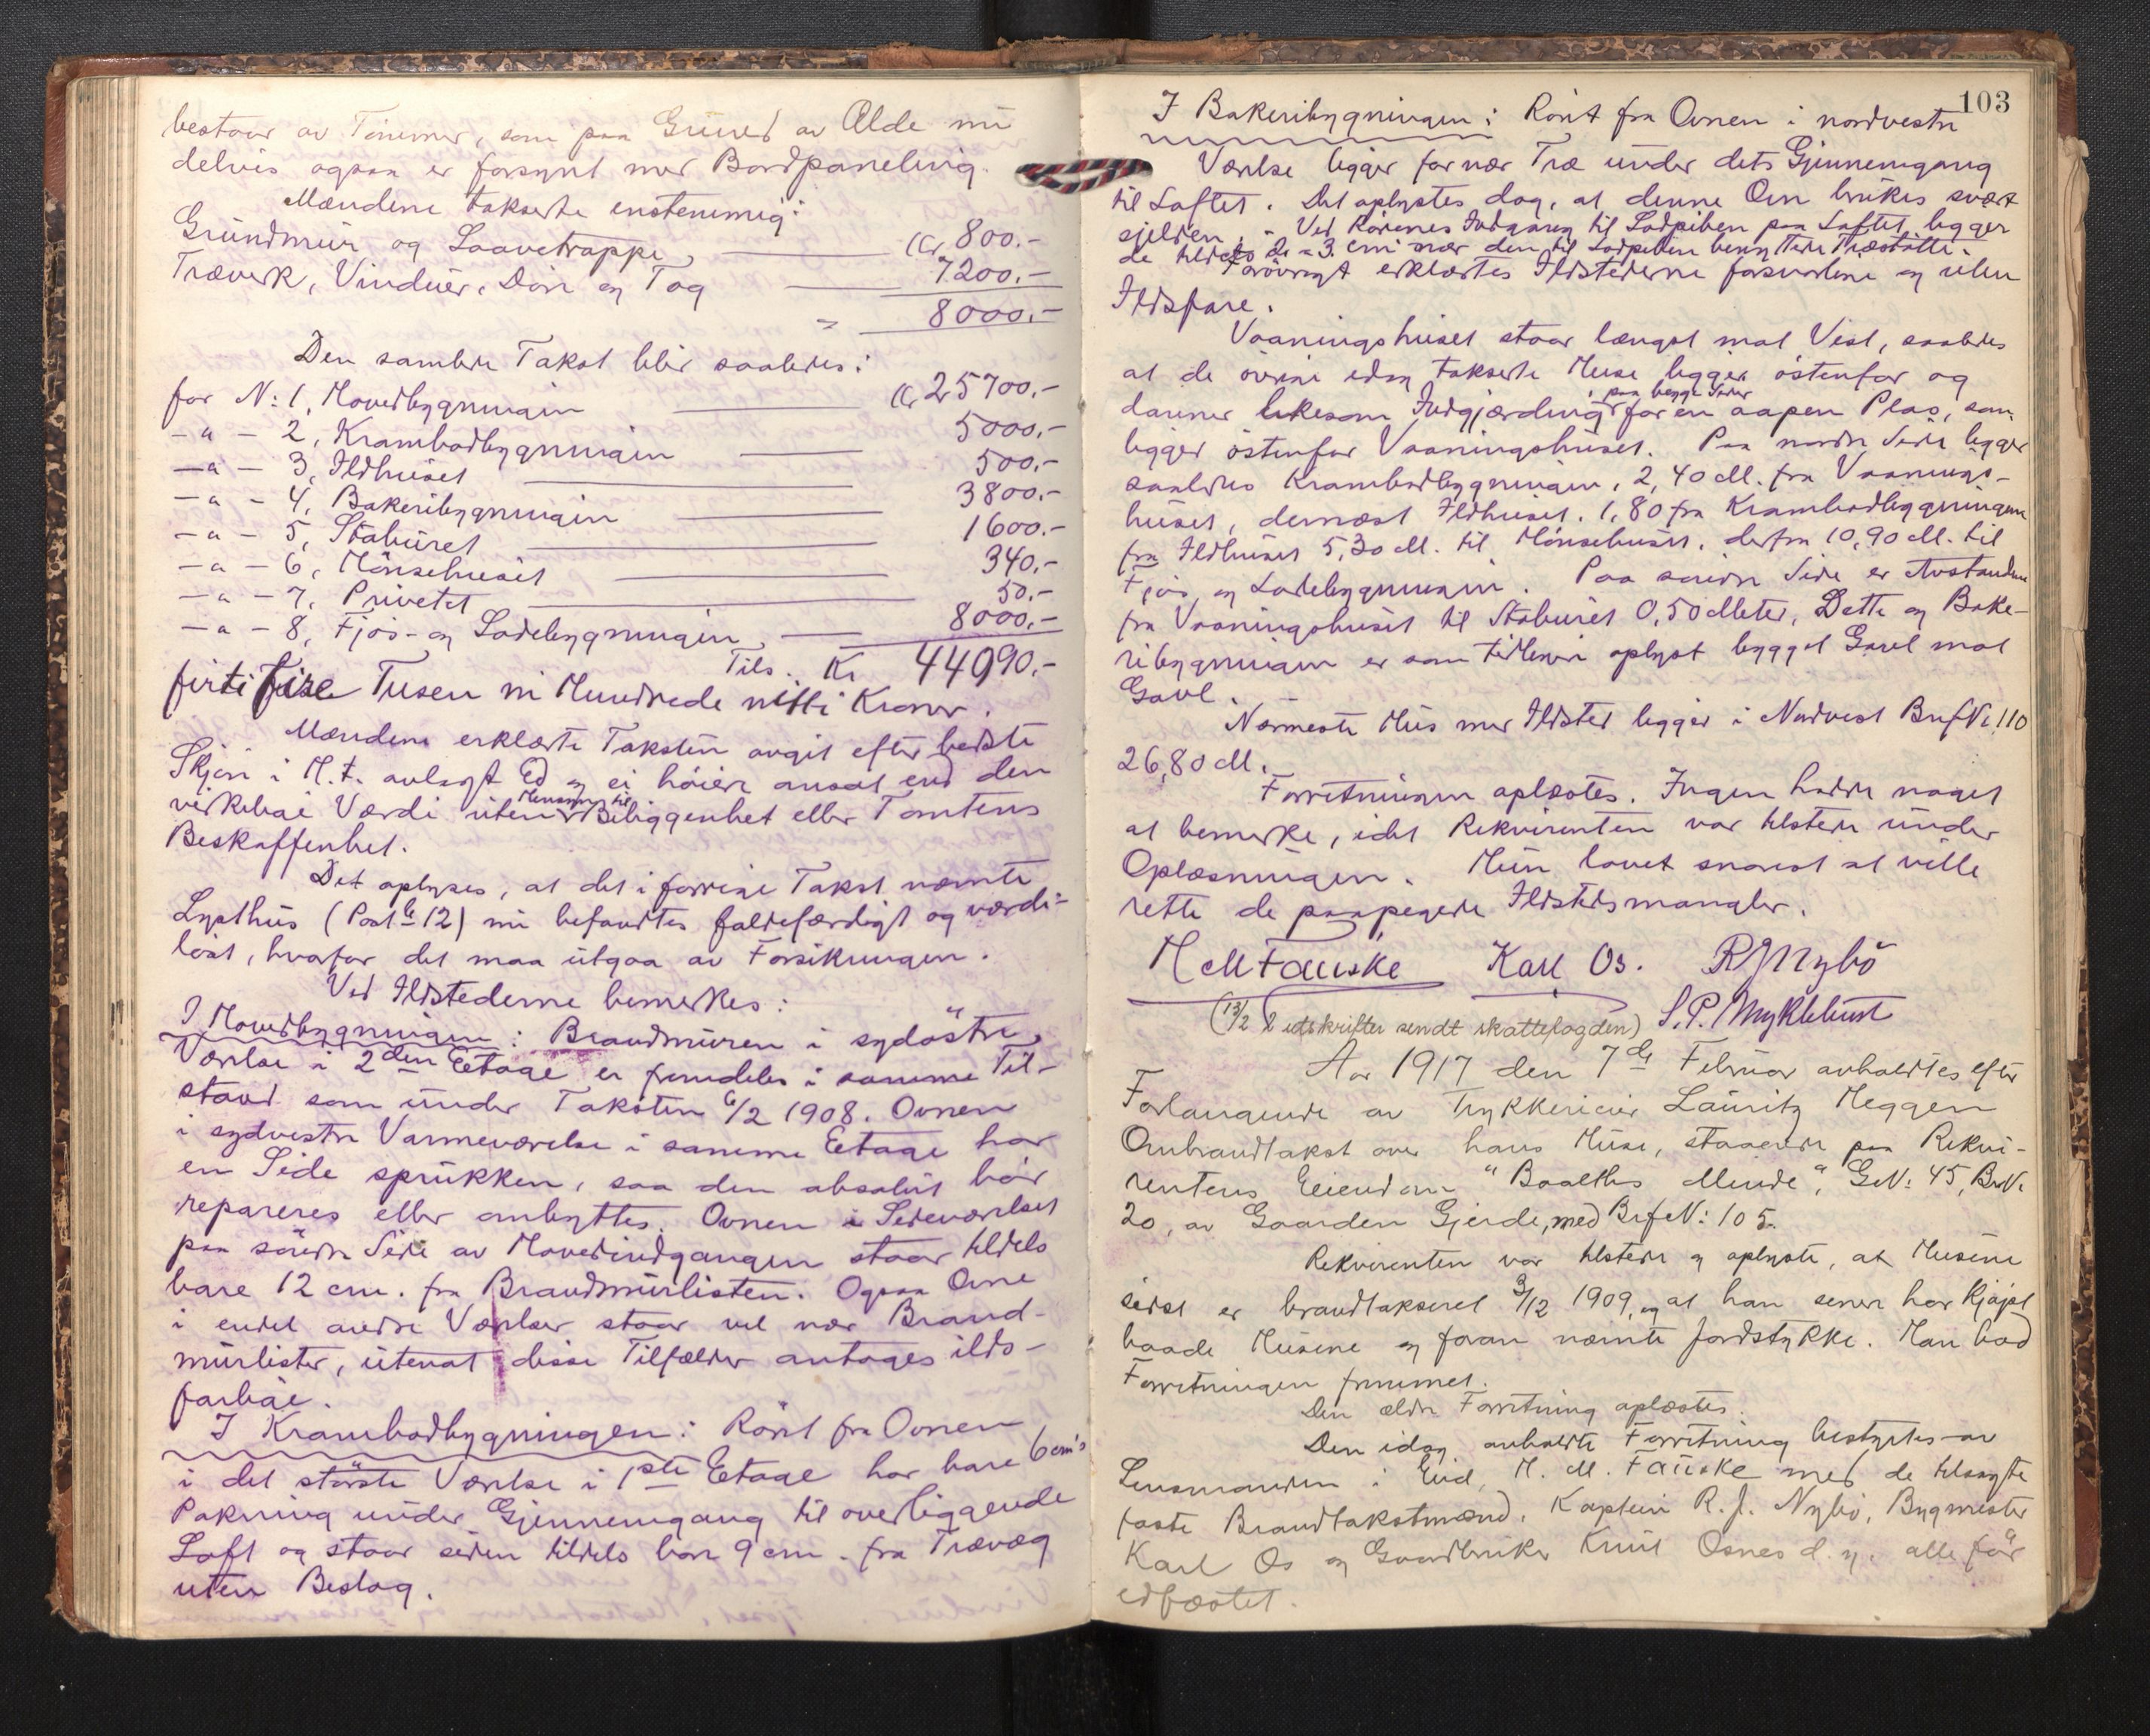 bestaar av Tømmer, som paa Grund av Ælde nu
delvis ogsaa er forsynt med Bordpaneling.
Mændene takserte enstemmig:
Grundmur og Laavetrappe Kr 800.-
Træverk, Vinduer, Døre og Tag 7200.-
= 8000.-
Den samlede Takst blir saaledes:
for N: 1, Hovedbygningen Kr 25700.-
-"- 2, Krambodbygningen 5000.-
-"- 3, Ildhuset 500.-
-"- 4, Bakeribygningen 3800.-
-"- 5, Staburet 1600.-
-"- 6, Hönsehuset 340.-
-"- 7, Privetet 50.-
-"- 8, Fjös- og Ladebygningen 8000.-
Tils. Kr 44990.-
firti fire Tusen ni Hundrede nitti Kroner.
Mændene erklærte Taksten avgit efter bedste
Skjøn i H. t. avlagt Ed og ei höiere ansat end den
virkelige Værdi uten Hensyn til Beliggenhet eller Tomtens
Beskaffenhet.
Det oplyses, at det i forrige Takst nævnte
Lysthus (Post 12) nu befandtes faldefærdigt og værdi-
löst, hvorfor det maa utgaa av Forsikringen.
Ved Ildstederne bemerkes:
I Hovedbygningen: Brandmuren i sydöstre
Værelse i 2den Etage er fremdeles i samme Til-
stand som under Taksten 6/2 1908. Ovnen
i sydvestre Varmeværelse i samme Etage har
en Side sprukken, saa den absolut bör
repareres eller ombyttes. Ovnen i Sideværelset
paa söndre Side av Hovedindgangen staar tildels
bare 12 cm. fra Brandmurlisten. Ogsaa Ovne
i endel andre Værelser staar vel nær Brand-
murlister, utenat disse Tilfælder antages ilds-
farlige.
I Krambodbygningen: Röret fra Ovnen
i det störste Værelse i 1ste Etage har bare 6 cm's
Pakning under Gjennemgang til overliggende
Loft og staar siden tildels bare 9 cm. fra Trævæg
uten Beslag.
103
I Bakeribygningen: Röret fra Ovnen i nordvestre
Værelse ligger for nær Træ under dets Gjennemgang
til Loftet. Det oplystes dog, at denne Ovn brukes svært
sjelden. - Ved Rörenes Indgang til Lodpiben paa Loftet ligger
de tildels 2 à 3 cm nær den til Lodpiben benyttede Træstötte.
Forövrigt erklærtes Ildstederne forsvarlige og uten
Ildsfare.
Vaaningshuset staar længst mot Vest, saaledes
at de övrige idag takserte Huse ligger östenfor og
danner likesom Indgjærding paa begge Sider for en aapen Plas, som
ligger östenfor Vaaningshuset. Paa nordre Side ligger
saaledes Krambodbygningen, 2,40 M. fra Vaanings-
huset, dernæst Ildhuset. 1,80 fra Krambodbygningen
fra Ildhuset 5,30 M. til Hönsehuset, derfra 10,90 M. til
Fjös og Ladebygningen. Paa söndre Side er Avstanden
fra Vaaningshuset til Staburet 0,50 Meter, Dette og Bake-
ribygningen er som tidligere oplyst bygget Gavl mot
Gavl.
Nærmeste Hus med Ildsted ligger i Nordvest BrfN: 110
26,80 M.
Forretningen oplæstes. Ingen hadde noget
at bemerke, idet Rekvirenten var tilstede under
Oplæsningen. Hun lovet snarest at ville
rette de paapegede Ildstedsmangler.
H M Fauske Karl Os. R J Nybö
(13/2 2 utskrifter sendt skattefogden) S. P. Myklebust
Aar 1917 den 7de Februar avholdtes efter
Forlangende av Trykkerieier Lauritz Heggen
Ombrandtakst over hans Huse, staaende paa Rekvi-
rentens Eiendom "Baalths Minde", GN: 45, BrN:
20, av Gaarden Gjerde, med BrfN: 105.
Rekvirenten var tilstede og oplyste, at Husene
sidst er brandtakseret 3/12 1909, og at han senere har kjøpt
baade Husene og foran nævnte Jordstykke. Han bad
Forretningen fremmet.
Den ældre Forretning oplæstes.
Den idag avholdte Forretning bestyrtes av
Lensmanden i Eid, H. M. Fauske med de tilsagte
faste Brandtakstmænd, Kaptein R. J. Nybö, Bygmester
Karl Os og Gaardbruker Knut Osnes d. y. alle för
edfæstet.